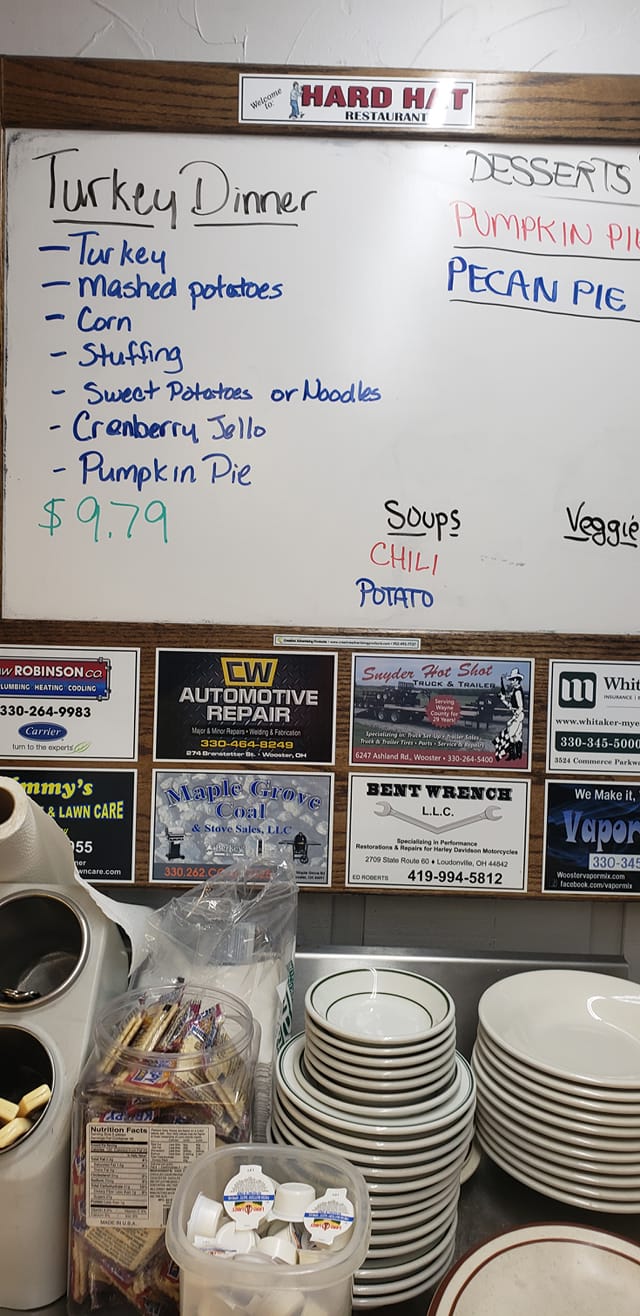 Welcome to:
HARD HAT
RESTAURANT
Turkey Dinner
- Turkey
- Mashed potatoes
- Corn
- Stuffing
- Sweet Potatoes or Noodles
- Cranberry Jello
- Pumpkin Pie
$9.79
DESSERTS
PUMPKIN PIE
PECAN PIE
Soups
CHILI
POTATO
Veggie
W ROBINSON CO.
LUMBING HEATING COOLING
330-264-9983
Carrier
turn to the experts
CW
AUTOMOTIVE
REPAIR
Major & Minor Repairs • Welding & Fabrication
330-464-8249
274 Branstetter St. • Wooster, OH
Snyder Hot Shot
TRUCK & TRAILER
Serving
Wayne
County for
29 Years!
Specializing in: Truck Set-Up • Trailer Sales
Truck & Trailer Tires • Parts • Service & Repairs
6247 Ashland Rd., Wooster • 330-264-5400
m
Whit
INSURANCE
www.whitaker-mye
330-345-5000
3524 Commerce Parkw
mmy's
& LAWN CARE
055
wncare.com
Maple Grove
Coal
& Stove Sales, LLC
330.262.
BENT WRENCH
L.L.C.
Specializing in Performance
Restorations & Repairs for Harley Davidson Motorcycles
2709 State Route 60 • Loudonville, OH 44842
ED ROBERTS
419-994-5812
We Make it,
Vapor
330-345
Woostervapormix.com
facebook.com/vapormix
Nutrition Facts
MADE IN U.S.A.